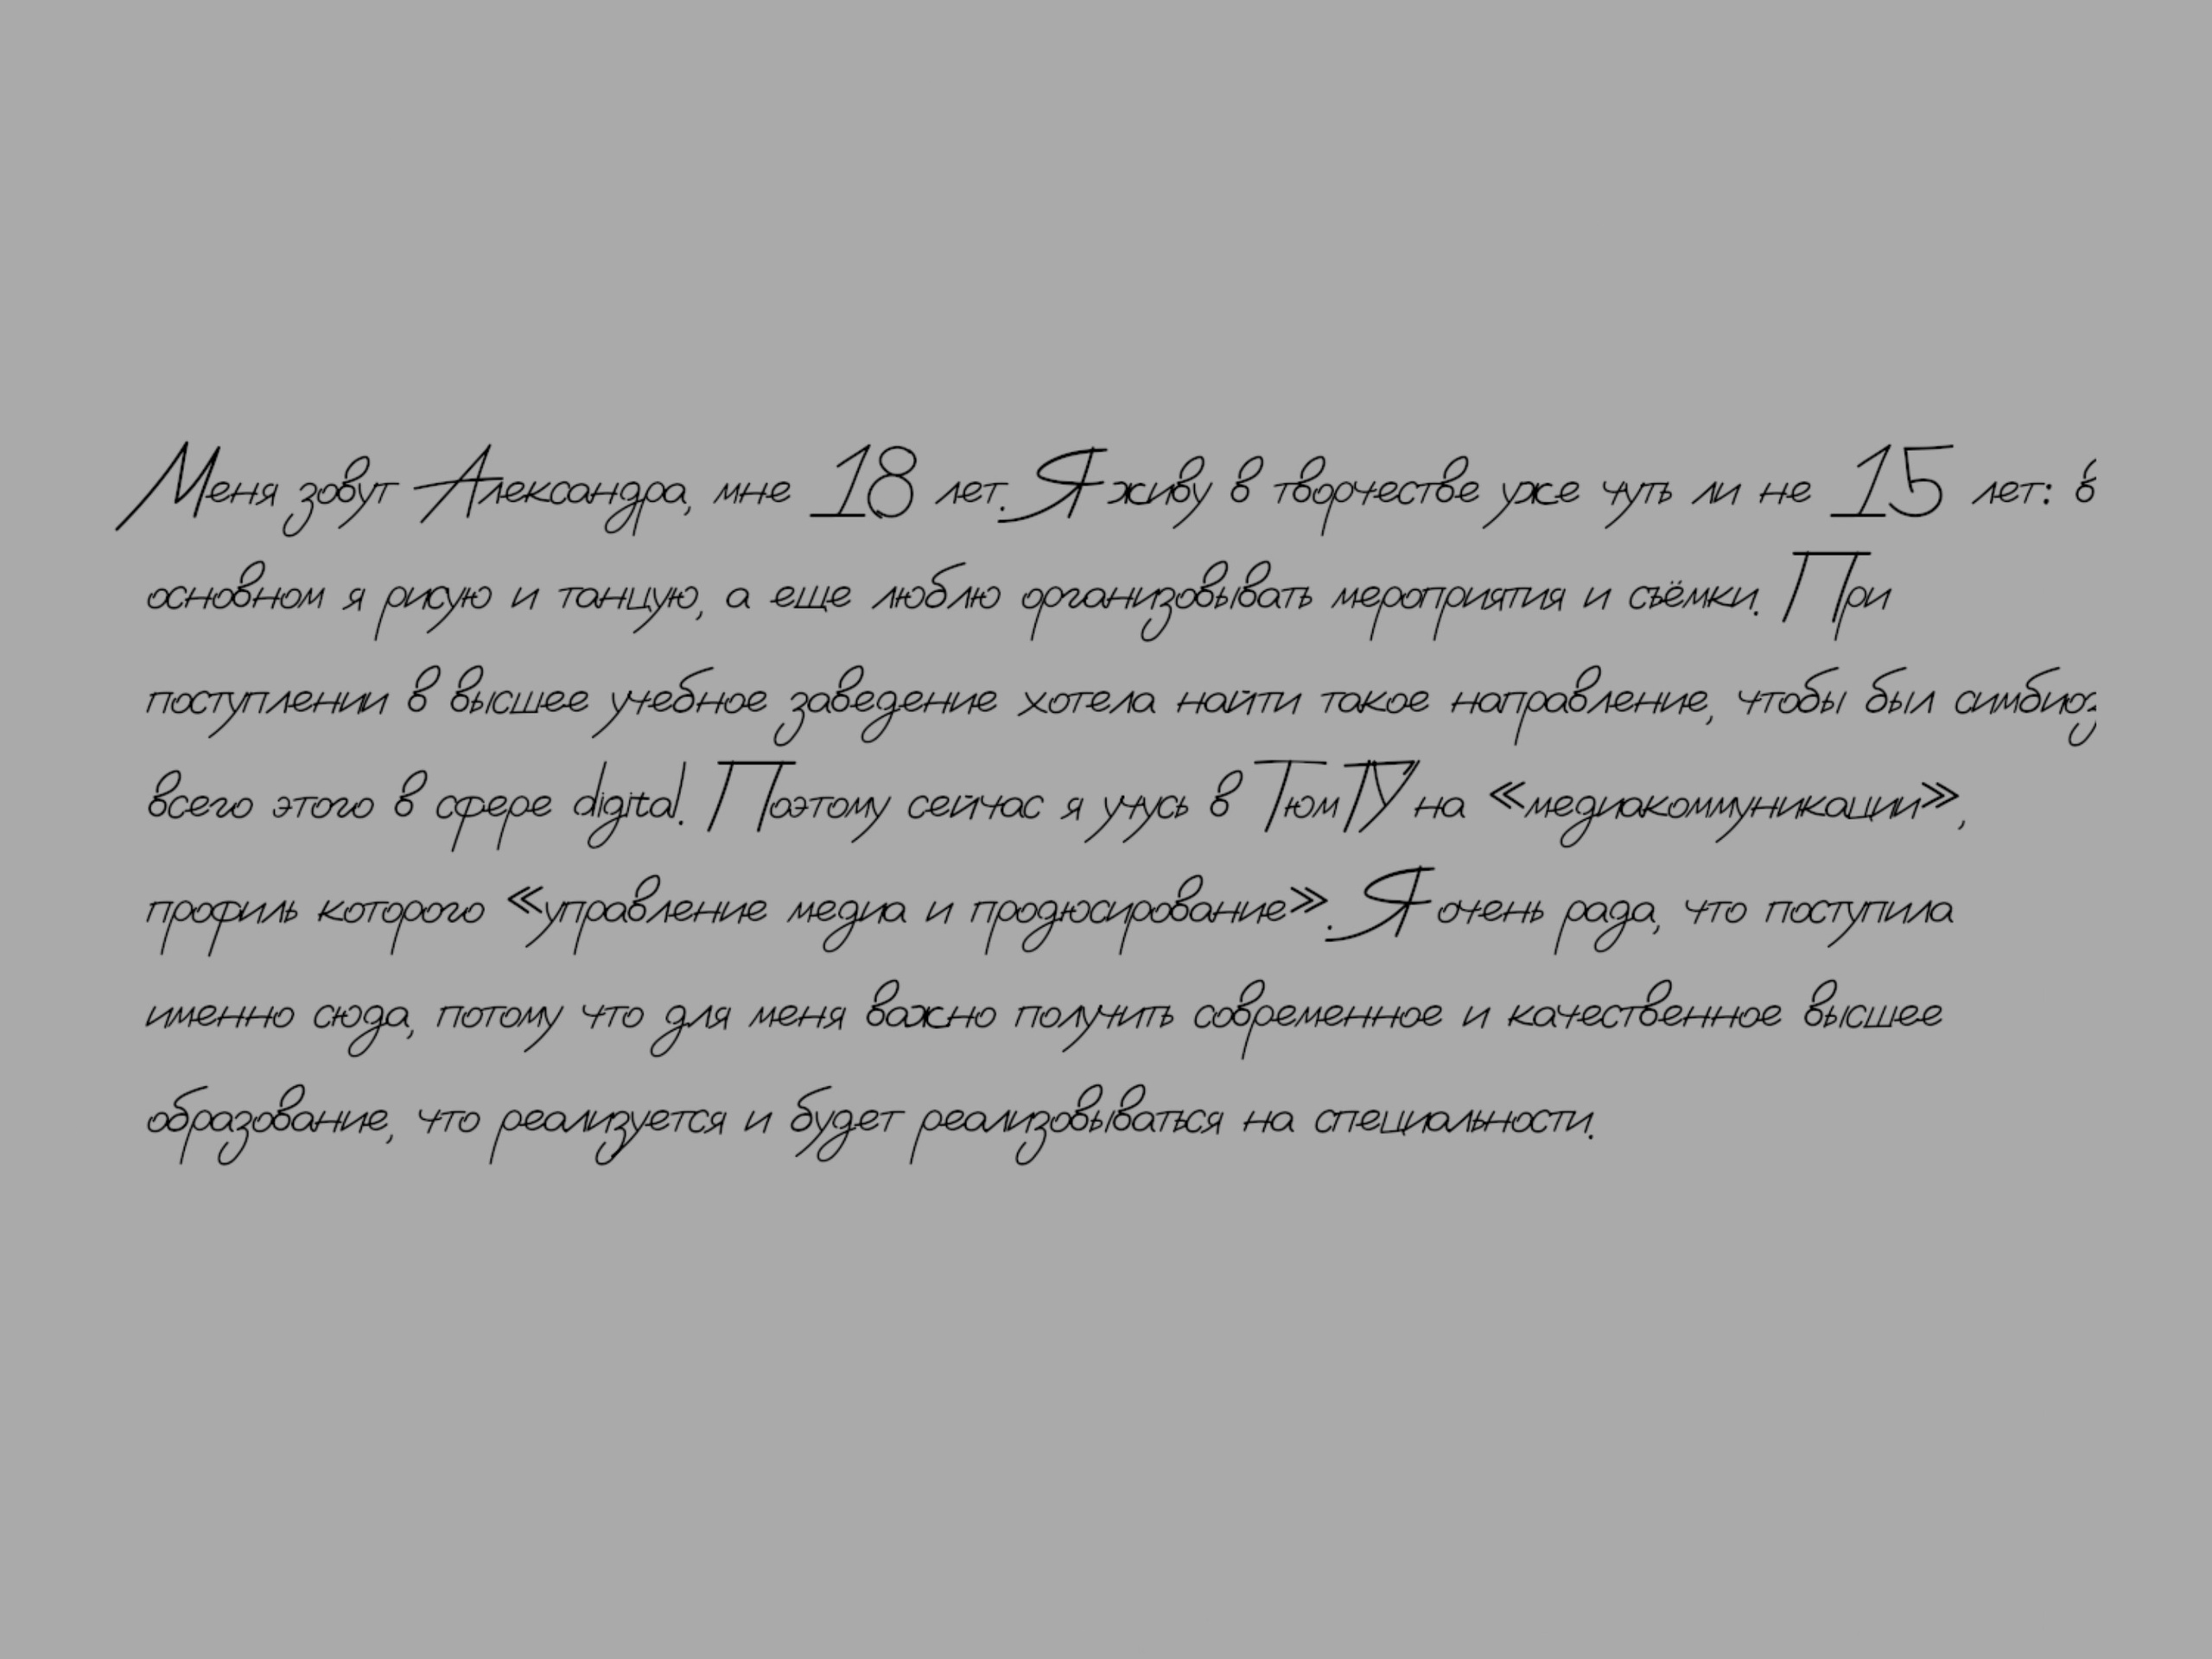 Меня зовут Александра, мне 18 лет. Я живу в творчестве уже чуть ли не 15 лет: в
основном я рисую и танцую, а еще люблю организовывать мероприятия и съёмки. При
поступлении в высшее учебное заведение хотела найти такое направление, чтобы был симбиоз
всего этого в сфере digital. Поэтому сейчас я учусь в ТюмГУ на «медиакоммуникации»,
профиль которого «управление медиа и продюсирование». Я очень рада, что поступила
именно сюда, потому что для меня важно получить современное и качественное высшее
образование, что реализуется и будет реализовываться на специальности.